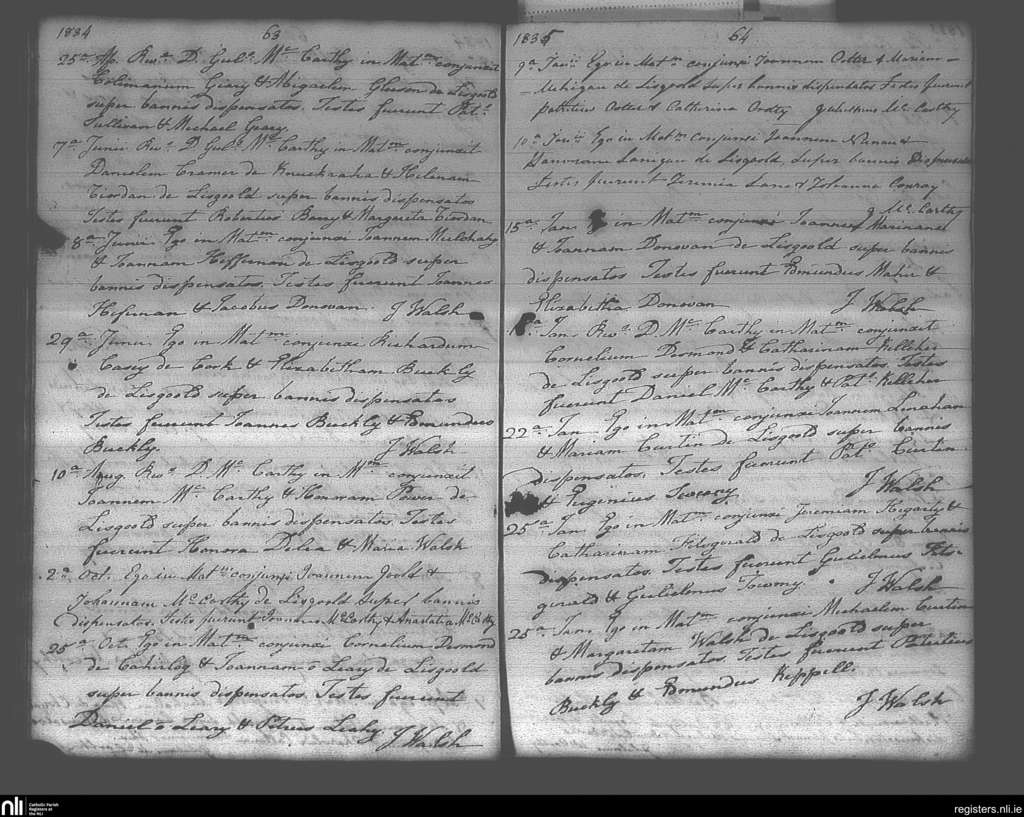 1834
63
25a Ap. Revs. D. Guls. Mc Carthy in Matm conjunxit
Colimanium Geary & Migaelem Gleeson de Lisgoold
super bannis dispensatos. Testes fuerunt Pats.
Sullivan & Michael Geary
7a Junii Revs. D. Guls. Mc Carthy in Matm conjunxit
Danielem Cramer de Knuckraha & Helenam
Riordan de Lisgoold super bannis dispensatos
Testes fuerunt Robertus Barry & Margarita Riordan
8a Junii. Ego in Matm conjunxi Joannem Mulchahy
& Joannam Heffernan de Lisgoold super
bannis dispensatos. Testes fuerunt Joannes
Hefernan & Jacobus Donovan. J Walsh
29a Junii. Ego in Matm conjunxi Richardum
Casey de Cork & Elizabetham Buckly
de Lisgoold super bannis dispensatos
Testes fuerunt Joannes Buckly & Edmundus
Buckly. J Walsh
10a Aug. Revs. D. Mc Carthy in Mm conjunxit
Joannem Mc Carthy & Honoram Power de
Lisgoold super bannis dispensatos. Testes
fuerunt Honora Delea & Maria Walsh
2a Oct. Ego in Matm conjunxi Joannem Joold &
Johannam McCarthy de Lisgoold super bannis
dispensatos. Testes fuerunt Joannes McCarthy & Anastatia McCarthy
25a Oct. Ego in Matm conjunxi Cornelium Desmond
de & Joannam o Leary de Lisgoold
super bannis dispensatos. Testes fuerunt
Daniel o Leary & Petrus Leahy J Walsh
1835
64
9a Janii Ego in Matm conjunxi Joannem Cotter & Mariam
Mehigan de Lisgoold super bannis dispensatos Testes fuerunt
Patritius Cotter & Catherina Gulielmus Mc Carthy
10a Janii Ego in Matm conjunxi Joannem &
Lanigan de Lisgoold super bannis dispensatos
Testes fuerunt Jeremia Lane & Johanna Conroy
g Mc Carthy
15a Jan in Matm conjunxi Joannem Marinane
& Joannam Donovan de Lisgoold super bannis
dispensatos Testes fuerunt Edmundus Maher &
Elizabetha Donovan J Walsh
18a Jan. Revs. D. Mc Carthy in Matm conjunxit
Cornelium Desmond & Catharinam Killeher
de Lisgoold super bannis dispensatos. Testes
fuerunt Daniel Mc Carthy & Pats. Killeher
22a Jan Ego in Matm conjunxi Joannem Linahan
& Mariam Curtin de Lisgoold super bannis
dispensatos. Testes fuerunt Pats. Curtin
& Eugenius Sweeny. J Walsh
25a Jan. Ego in Matm conjunxi Jeremiam Hegarty &
Catharinam Fitzgerald de Lisgoold super bannis
dispensatos. Testes fuerunt Gulielmus Fitz-
gerald & Gulielmus Toomy. J Walsh
25a Jan. Ego in Matm conjunxi Michaelem Curtin
& Margaretam Walsh de Lisgoold super
bannis dispensatos. Testes fuerunt Patritius
Buckly & Edmundus Keppell.
J Walsh
nli
Catholic Parish
Registers at
the NLI
registers.nli.ie